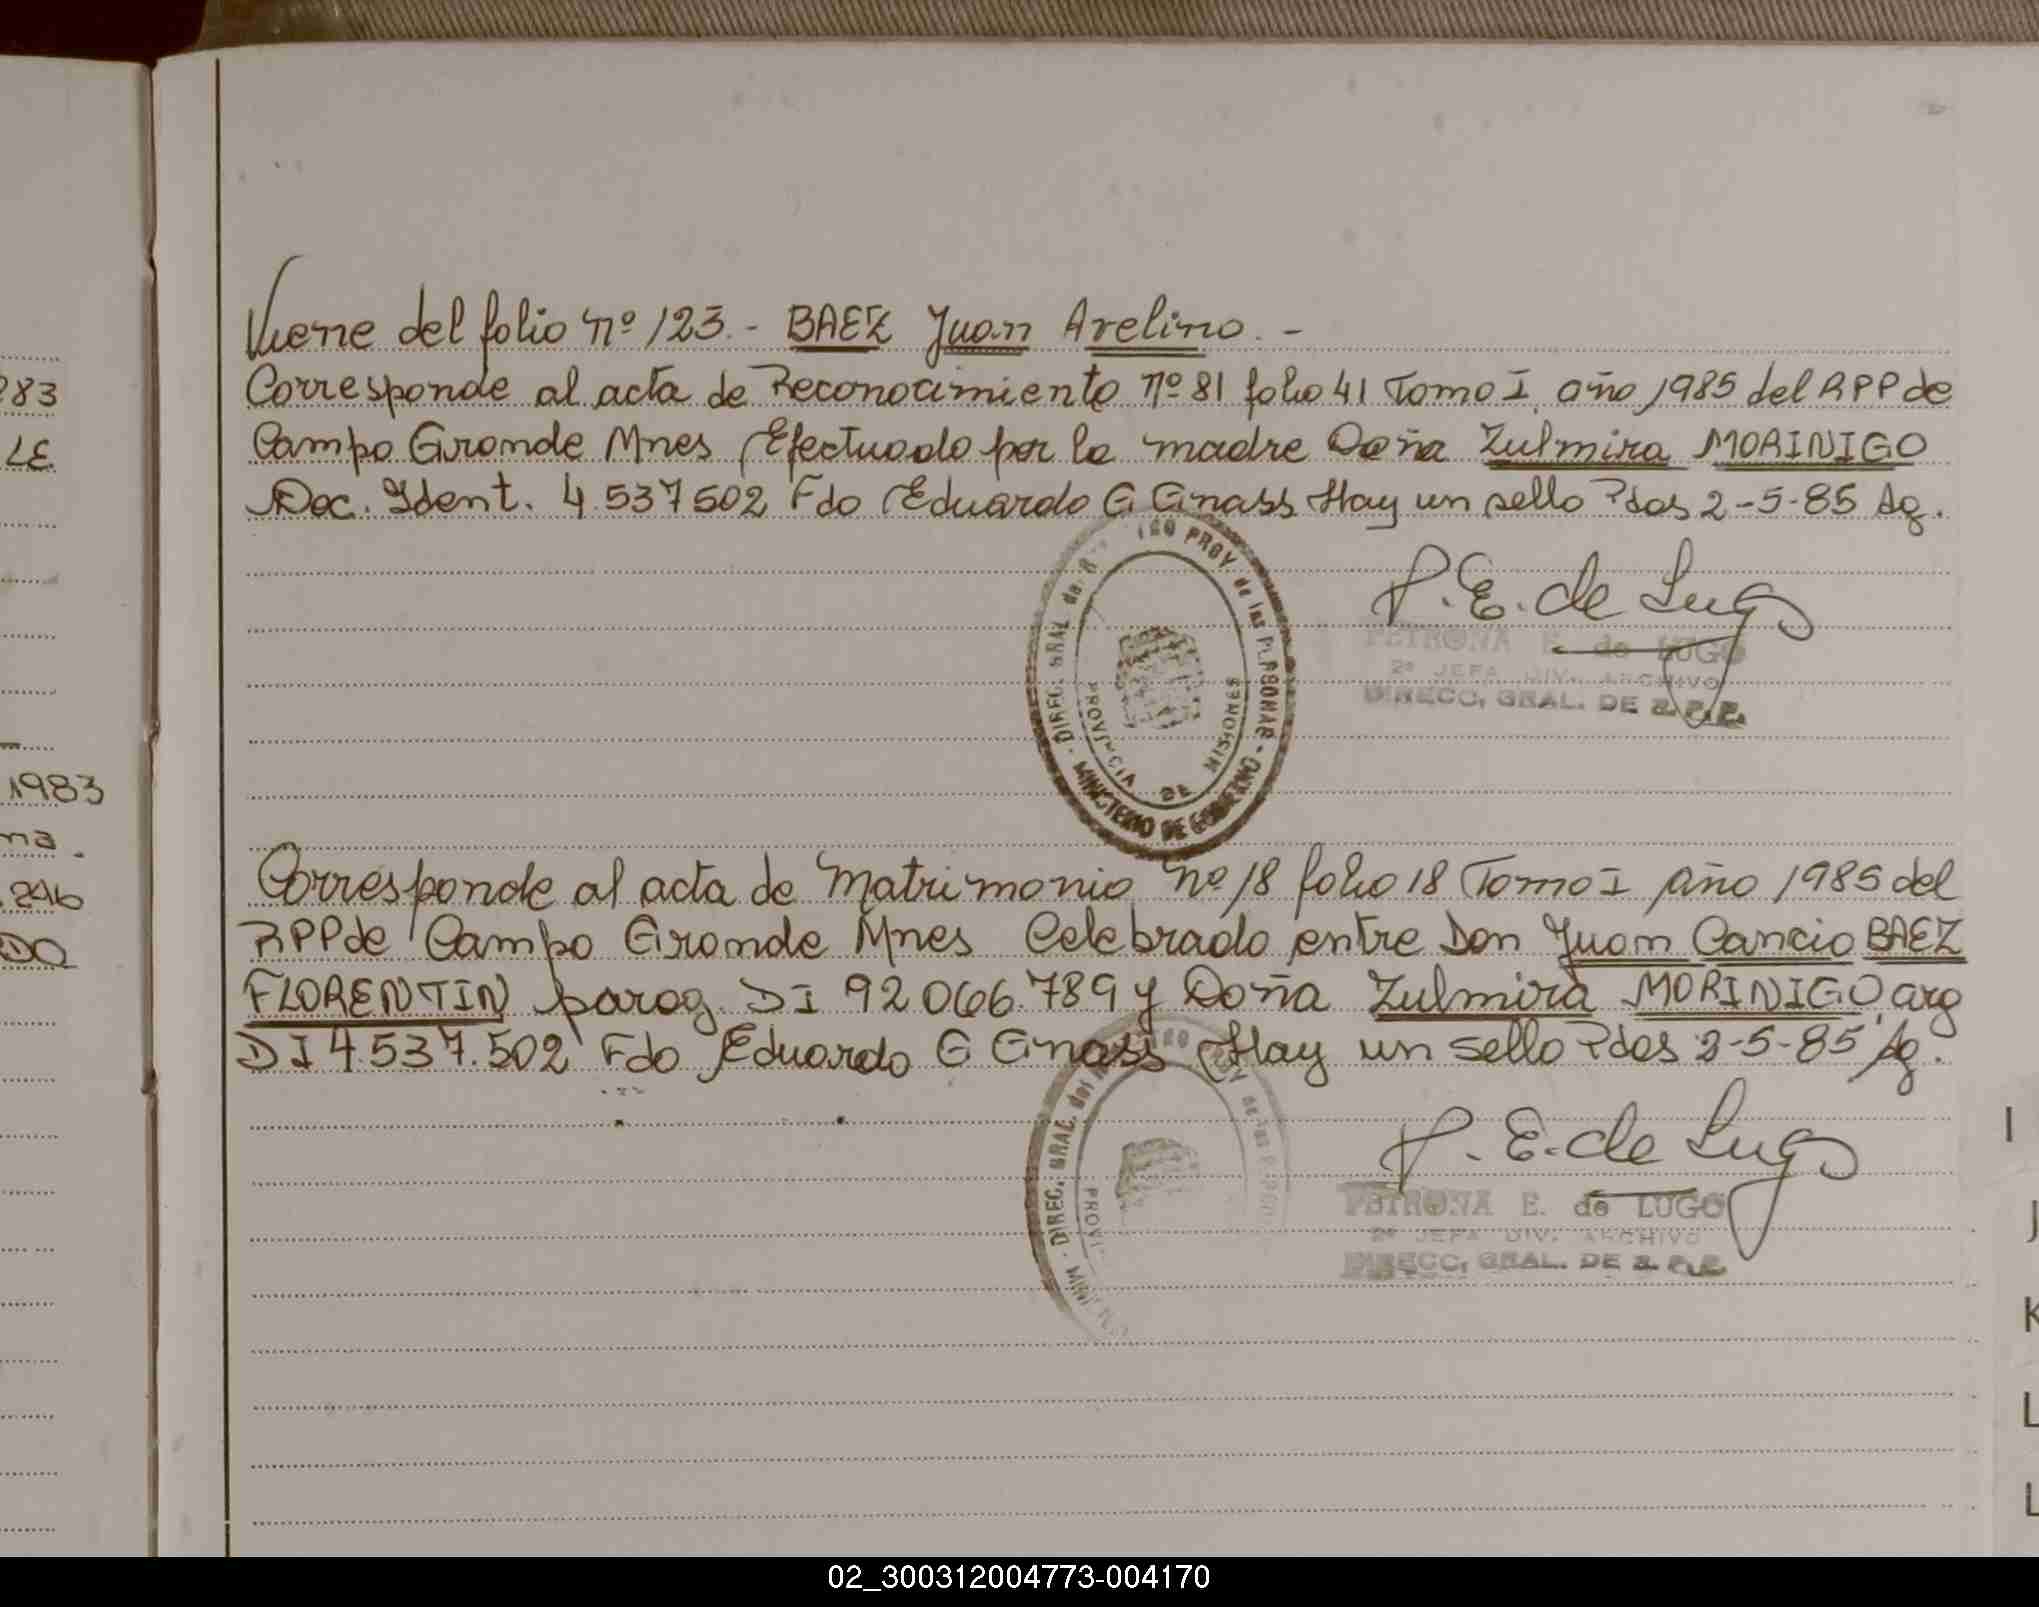 283
LE
1983
na.
246
DO
Viene del folio nº 123.- BAEZ Juan Avelino.-
Corresponde al acta de Reconocimiento nº 81 folio 41 Tomo I, año 1985 del RPP de
Campo Grande Mnes Efectuado por la madre Doña Zulmira MORINIGO
Doc. Ident. 4.537502 Fdo Eduardo G Gnass Hay un sello Pdas 2-5-85 Ag.
P.E. de Lugo
PETRONA E. de LUGO
2º JEFA DIV. ARCHIVO
DIRECC. GRAL. DE R.P.P.
DIREC. GRAL. del PROV de las PERSONAS - MINISTERIO DE GOBIERNO
PROVINCIA DE MISIONES
Corresponde al acta de Matrimonio nº 18 folio 18 Tomo I año 1985 del
RPP de Campo Grande Mnes Celebrado entre Don Juan Cancio BAEZ
FLORENTIN parag. DI 92066.789 y Doña Zulmira MORINIGO arg
DI 4.537.502 Fdo Eduardo G Gnass Hay un sello Pdas 2-5-85 Ag.
P.E. de Lugo
PETRONA E. de LUGO
2º JEFA DIV. ARCHIVO
DIRECC. GRAL. DE R.P.P.
DIREC. GRAL. del
PROVI
MINI
I
J
K
L
L
02_300312004773-004170